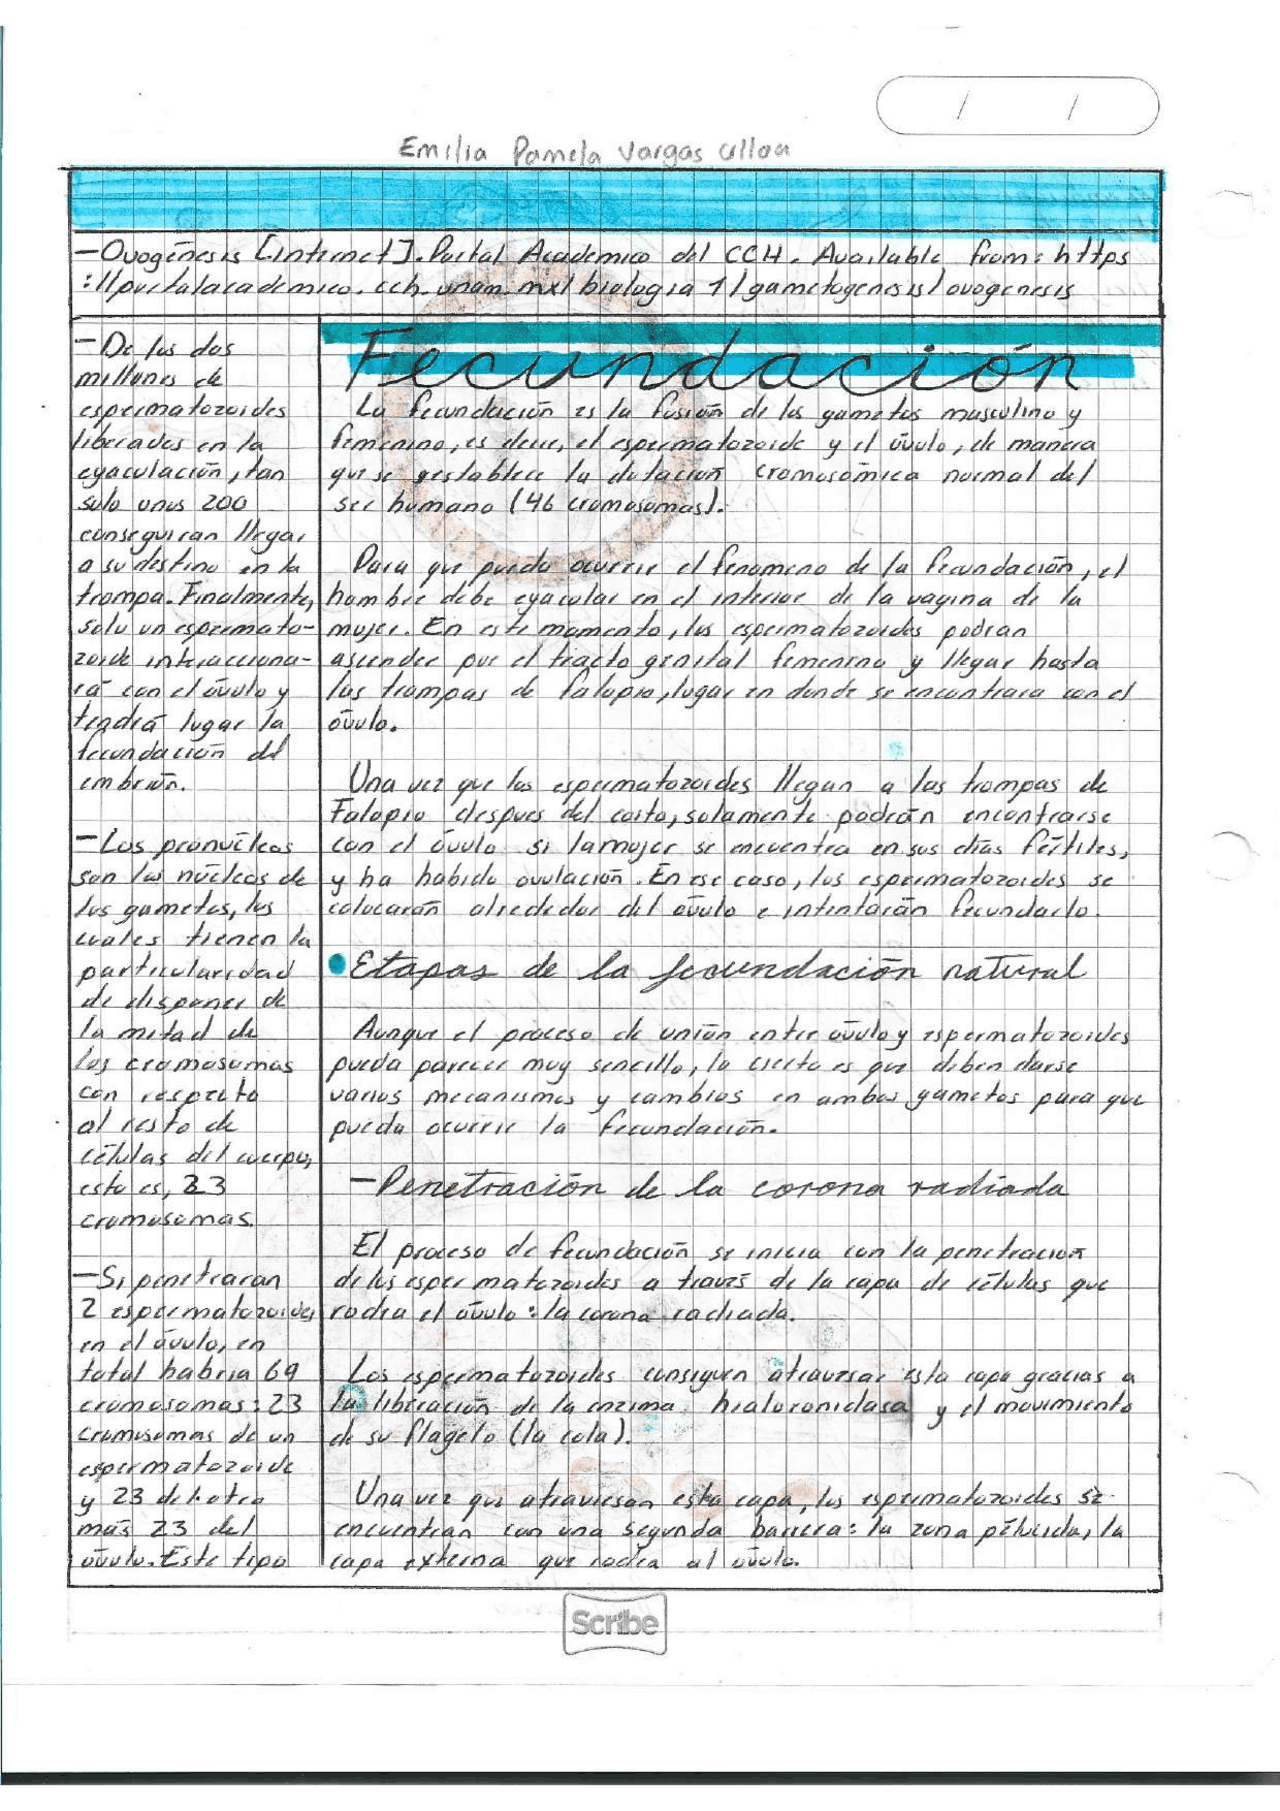 / /
Emilia Pamela Vargas Ulloa
—Ovogénesis [Internet]. Portal Academico del CCH. Available from: https
://portalacademico.cch.unam.mx/biologia 1/gametogenesis/ovogenesis
—De los dos
millones de
espermatozoides
liberados en la
eyaculación, tan
solo unos 200
conseguiran llegar
a su destino en la
trompa. Finalmente,
solo un espermato-
zoide interacciona-
rá con el óvulo y
tendrá lugar la
fecundación del
embrión.
—Los pronucleos
son los núcleos de
los gametos, los
cuales tienen la
particularidad
de disponer de
la mitad de
los cromosomas
con respecto
al resto de
células del cuerpo,
esto es, 23
cromosomas.
—Si penetraran
2 espermatozoides
en el óvulo, en
total habria 69
cromosomas: 23
cromosomas de un
espermatozoide
y 23 del otro
más 23 del
óvulo. Este tipo
Fecundación
La fecundación es la fusión de los gametos masculino y
femenino, es decir, el espermatozoide y el óvulo, de manera
que se restablece la dotación cromosómica normal del
ser humano (46 cromosomas).
Para que pueda ocurrir el fenomeno de la fecundación, el
hombre debe eyacular en el interior de la vagina de la
mujer. En este momento, los espermatozoides podran
ascender por el tracto genital femenino y llegar hasta
las trompas de falopio, lugar en donde se encontrara con el
óvulo.
Una vez que los espermatozoides llegan a las trompas de
Falopio despues del coito, solamente podrán encontrarse
con el óvulo si la mujer se encuentra en sus días fértiles,
y ha habido ovulación. En ese caso, los espermatozoides se
colocarán alrededor del óvulo e intentarán fecundarlo.
•Etapas de la fecundación natural
Aunque el proceso de unión entre óvulo y espermatozoides
pueda parecer muy sencillo, lo cierto es que deben darse
varios mecanismos y cambios en ambos gametos para que
pueda ocurrir la fecundación.
—Penetración de la corona radiada
El proceso de fecundación se inicia con la penetracion
de los espermatozoides a través de la capa de células que
rodea el óvulo: la corona radiada.
Los espermatozoides consiguen atravesar esta capa gracias a
la liberación de la enzima hialuronidasa y el movimiento
de su flagelo (la cola).
Una vez que atraviesan esta capa, los espermatozoides se
encuentran con una segunda barrera: la zona pélucida, la
capa externa que rodea al óvulo.
Scribe